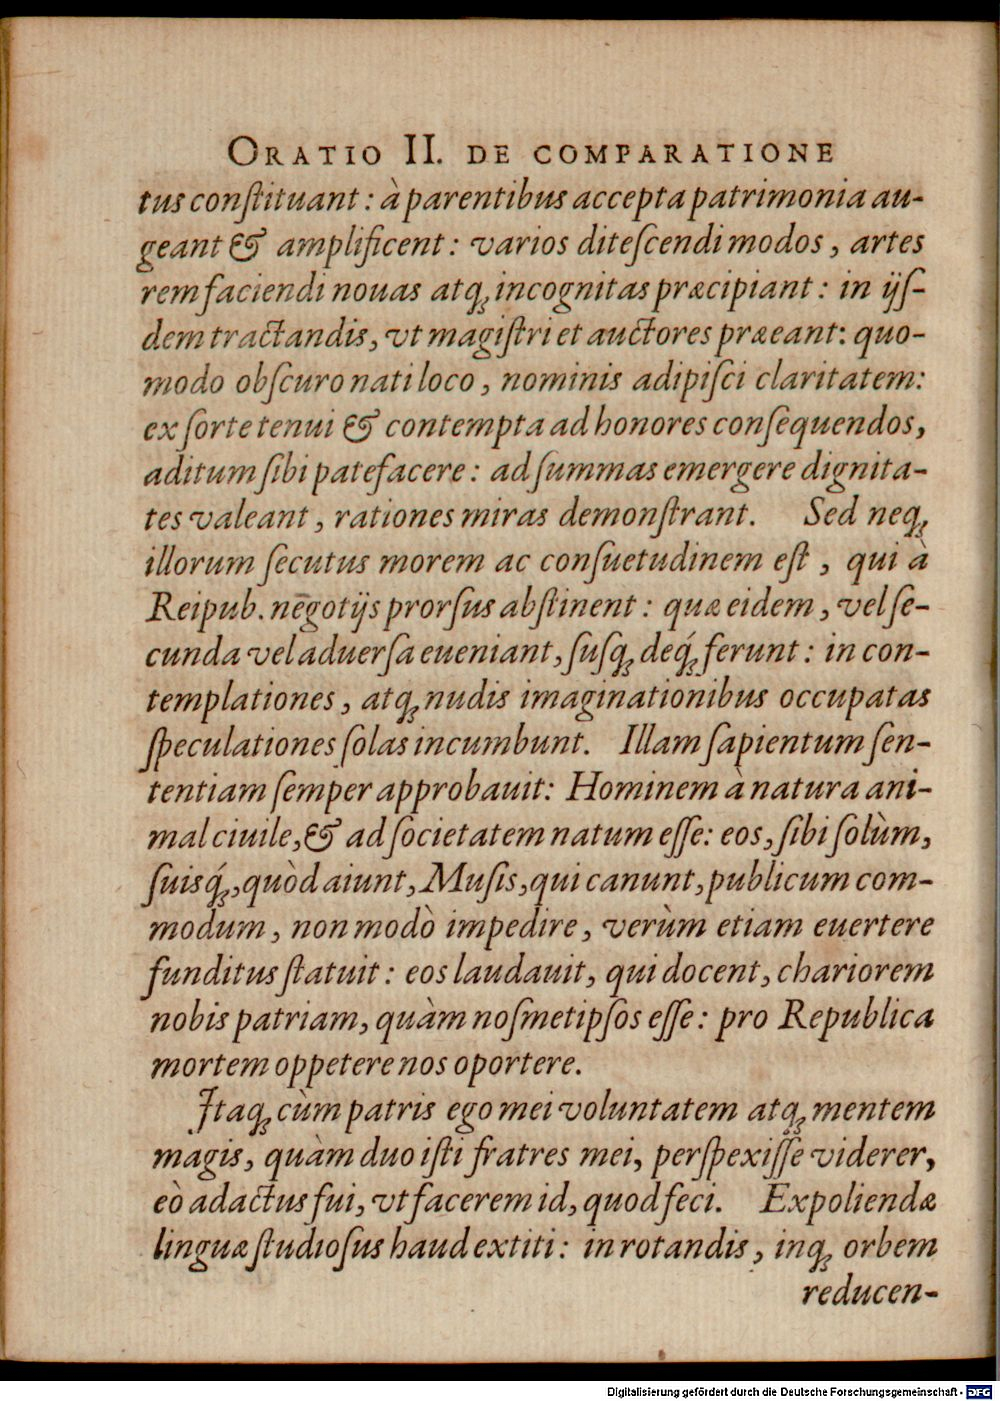 ORATIO II. DE COMPARATIONE
tus conſtituant : à parentibus accepta patrimonia au-
geant & amplificent : varios diteſcendi modos, artes
rem faciendi nouas atq; incognitas præcipiant : in ijſ-
dem tractandis, vt magiſtri et auctores præeant: quo-
modo obſcuro nati loco, nominis adipiſci claritatem:
ex ſorte tenui & contempta ad honores conſequendos,
aditum ſibi patefacere : ad ſummas emergere dignita-
tes valeant, rationes miras demonſtrant. Sed neq;
illorum ſecutus morem ac conſuetudinem eſt, qui à
Reipub. negotijs prorſus abſtinent : quæ eidem, vel ſe-
cunda vel aduerſa eueniant, ſuſq; deq́; ferunt : in con-
templationes, atq; nudis imaginationibus occupatas
ſpeculationes ſolas incumbunt. Illam ſapientum ſen-
tentiam ſemper approbauit: Hominem à natura ani-
mal ciuile, & ad ſocietatem natum eſſe: eos, ſibi ſolùm,
ſuisq́;, quòd aiunt, Muſis, qui canunt, publicum com-
modum, non modò impedire, verùm etiam euertere
funditus ſtatuit : eos laudauit, qui docent, chariorem
nobis patriam, quàm noſmetipſos eſſe: pro Republica
mortem oppetere nos oportere.
Itaq; cùm patris ego mei voluntatem atq; mentem
magis, quàm duo iſti fratres mei, perſpexiſſe viderer,
eò adactus fui, vt facerem id, quod feci. Expoliendæ
linguæ ſtudioſus haud extiti: in rotandis, inq; orbem
reducen-
Digitalisierung gefördert durch die Deutsche Forschungsgemeinschaft - DFG